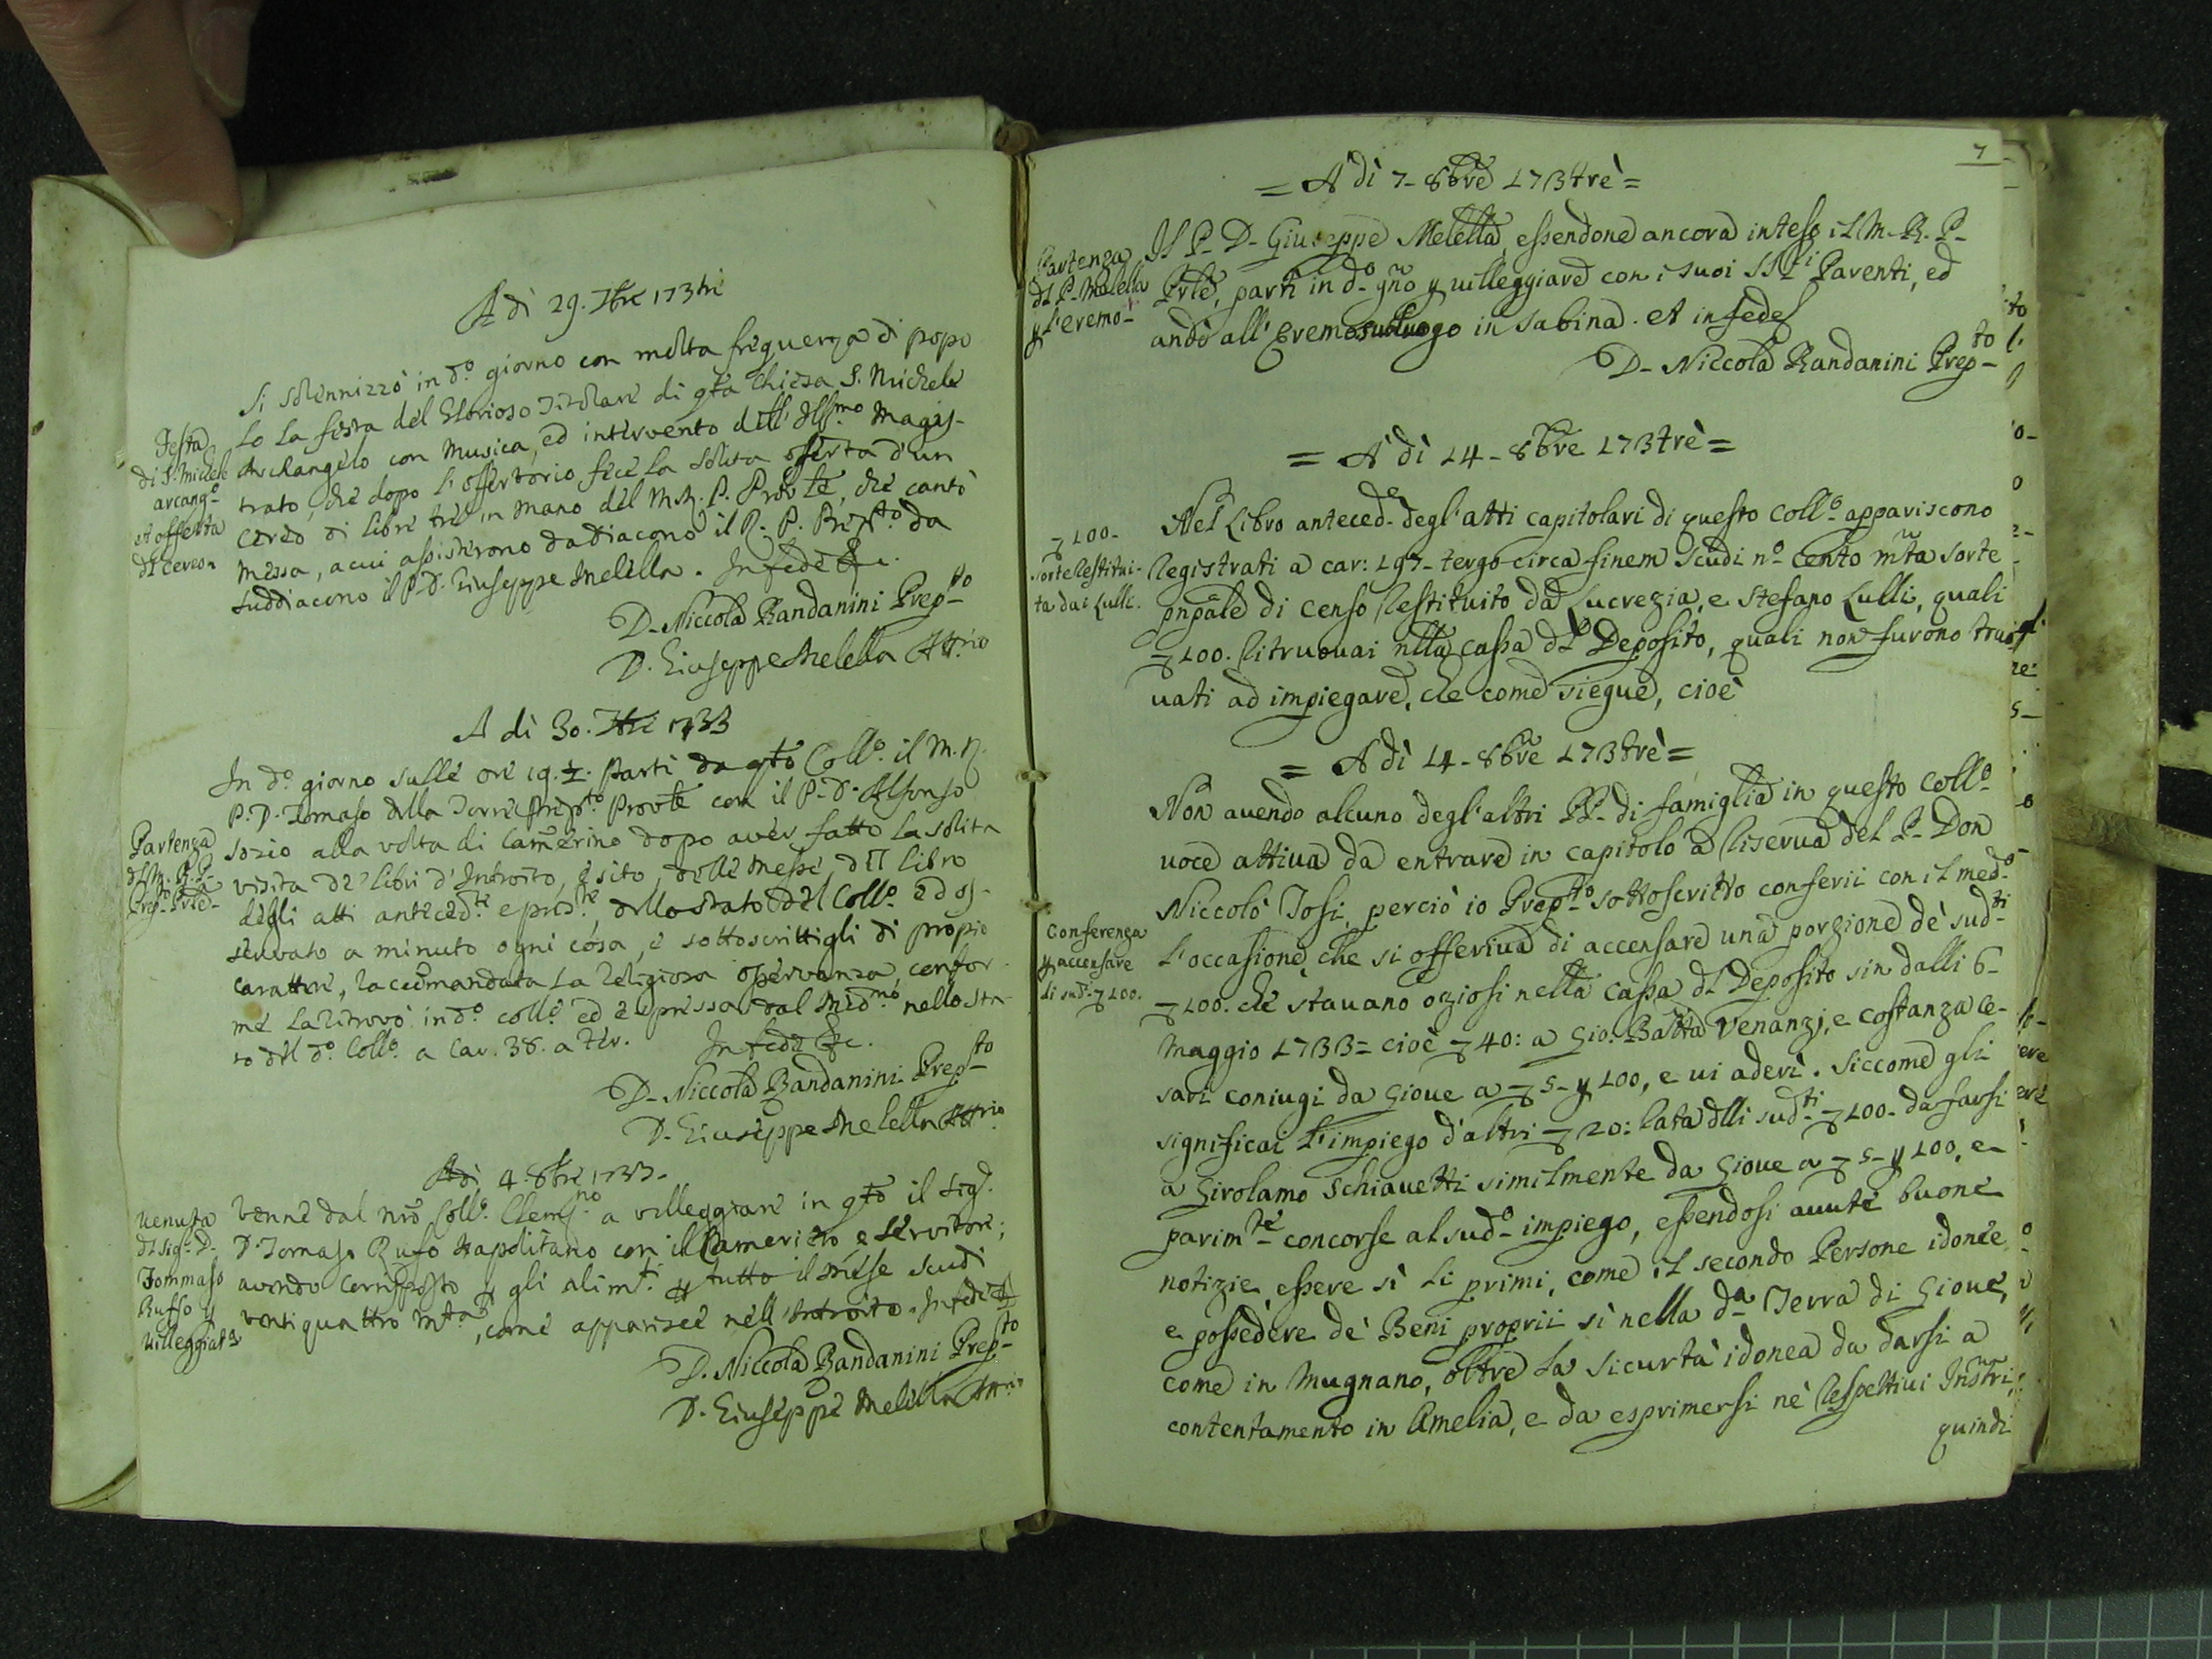 A dì 29. 7bre 173tre
Si solennizzò in d.o giorno con molta frequenza di popo
lo la festa del Glorioso Titolare di qta Chiesa S. Michele
Archangelo con Musica, ed intervento dell' Illmo Magis-
trato, che dopo l'offertorio fece la solita offerta d'un
cereo di libre tre in mano del M.R. P. Prov.le, che cantò
messa, a cui assisterono da diacono il R. P. Prep.to da
suddiacono il P. D. Giuseppe Melella. In fede &c.
Festa
di S. Michele
arcang.o
et offerta
del cereo.
D. Niccola Randanini Prep.to
D. Giuseppe Melella Att.rio
A di 30. 7bre 1733
In d.o giorno sulle ore 19. ½. parti da qto Coll.o il M. R.
P. D. Tomaso della Torre Prep.to Prov.le con il P. D. Alfonso
Sozio alla volta di Camerino dopo aver fatto la solita
visita de' libri d'Introito, esito, delle messe, del libro
degli atti anteced.te e pred.te, dello stato del Coll.o ed os-
servato a minuto ogni cosa, e sottoscrittigli di propio
carattere, raccomandata la religiosa osservanza, confor-
me la ritrovò in d.o coll.o ed è espresso dal med.mo nello sta-
to del d.o Coll.o a Car. 38. a ter. In fede &c.
Partenza
del M. R. P.
Prep. Prle
D. Niccola Randanini Prep.to
D. Giuseppe Melella Att.rio
A dì 4. 8bre 1733.
Venne dal nro Coll.o Clem.no a villeggiare in qto il Sig.r
D. Tomaso Rufo Napolitano con il Cameriero e servitore;
avendo corrisposto p gli alim.ti p tutto il mese scudi
ventiquattro mta, come apparisce nell'Introito. In fede &c
Venuta
del Sig.r D.
Tommaso
Ruffo p
villeggiat.a
D. Niccola Randanini Prep.to
D. Giuseppe Melella Att.rio
7
= A dì 7 - 8bre 173tre =
Il P. D. Giuseppe Melella, essendone ancora inteso il M. R. P.
Prle, partì in d.o gno p villeggiare con i suoi SS.ri Parenti, ed
andò all' Eremo in Sabina. et in fede
Partenza
del P. Melella
p l'eremo
D. Niccola Randanini Prep.to
= A dì 14 - 8bre 173tre =
Nel Libro anteced.e degl'atti capitolari di questo Coll.o appariscono
registrati a car: 197 tergo circa finem scudi n.o cento mta sorte
pnpale di censo restituito da Lucrezia, e Stefano Lulli, quali
100. ritruovai nlla cassa del Deposito, quali non furono truo
uati ad impiegare, che come siegue, cioè
100.
sorte restitui-
ta dai Lulli.
= A dì 14 - 8bre 173tre =
Non auendo alcuno degl'altri PP. di famiglia in questo Coll.o
uoce attiua da entrare in capitolo a riserua del P. Don
Niccolò Tosi, perciò io Prep.to sottoscritto conferii con il med.o
l'occasione, che si offeriua di accensare una porzione de' sud.ti
100. che stauano oziosi nella cassa del Deposito sin dalli 6
Maggio 1733 = cioè 40: a Gio: Batta Venanzj, e Costanza Ce-
sari coniugi da Gioue a 5 p 100, e ui aderì. Siccome gli
significai l'impiego d'altri 20: rata dlli sud.ti 100. da farsi
a Girolamo Schiauetti similmente da Gioue a 5 p 100, e
parim.te concorse al sud.o impiego, essendosi auute buone
notizie, essere sì li primi, come il secondo Persone idonee
e possedere de' Beni proprii sì nella d.a Terra di Gioue,
come in Mugnano, oltre la sicurtà idonea da darsi a
contentamento in Amelia, e da esprimersi ne' respettiui Instri,
quindi
Conferenza
p accensare
li sud.i 100.